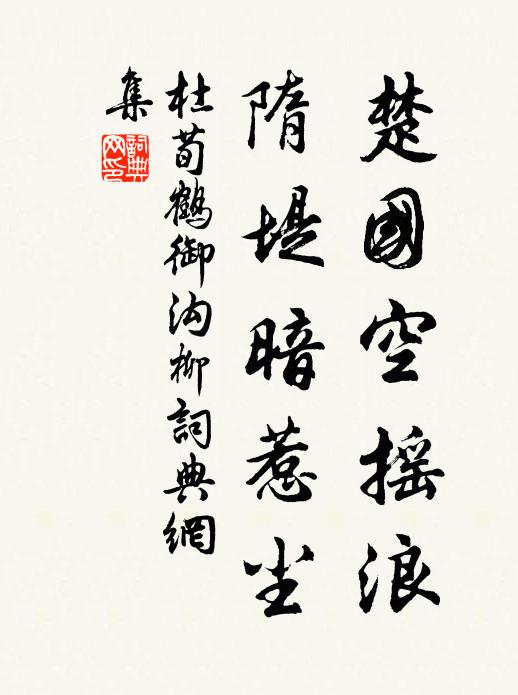 楚國空摇浪
隋堤暗惹尘
杜荀鶴御沟柳詞典網
集
詞典
网印